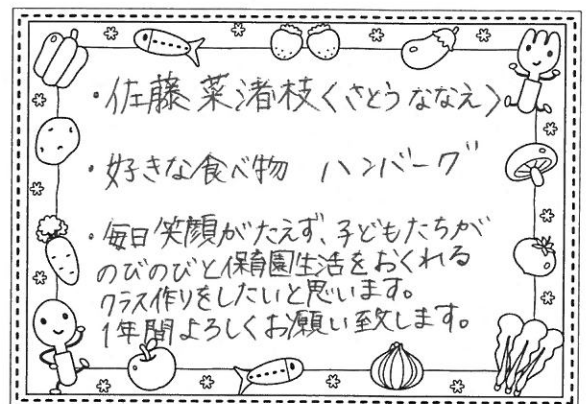 ・佐藤 菜渚枝〈さとう ななえ〉
・好きな食べ物 ハンバーグ
・毎日笑顔がたえず、子どもたちが
のびのびと保育園生活をおくれる
クラス作りをしたいと思います。
1年間よろしくお願い致します。